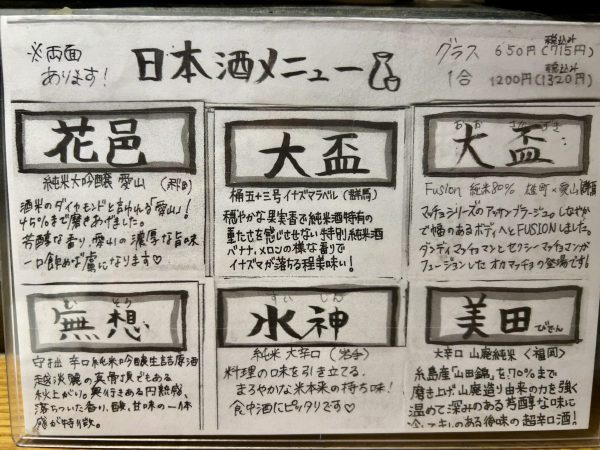 ※両面
あります!
日本酒メニュー
グラス 650円(715円)
税込み
1合 1200円(1320円)
税込み
花邑
純米大吟醸 愛山 (秋田)
酒米のダイヤモンドと言われる「愛山」!
45%まで磨きあげました。
芳醇な香り、愛山の濃厚な旨味
一口飲めば虜になります♡
大盃
桶五十三号イナズマラベル(群馬)
穏やかな果実香で純米酒特有の
重たさを感じさせない特別純米酒
バナナ、メロンの様な香りで
イナズマが落ちる程美味い!
おおさかずき
大盃
Fusion 純米80% 雄町×愛山
マッチョシリーズのアッサンブラージュ。しなやか
で幅のあるボディへとFUSIONしました。
ダンディマッチョマンとセクシーマッチョマンが
フュージョンした オカマッチョの登場です!
むそう
無想
守拙 辛口純米吟醸生詰原酒
越淡麗の真骨頂でもある
秋上がり。奥行きある円熟感、
落ちついた香り、酸、甘味の一体
感が特徴。
すいじん
水神
純米 大辛口 (岩手)
料理の味を引き立てる。
まろやかな米本来の持ち味!
食中酒にピッタリです♡
美田
びでん
大辛口 山廃純米 <福岡>
糸島産「山田錦」を70%まで
磨き上げ、山廃造り由来の力を強く
温めて深みのある芳醇な味に
のある後味の超辛口酒!